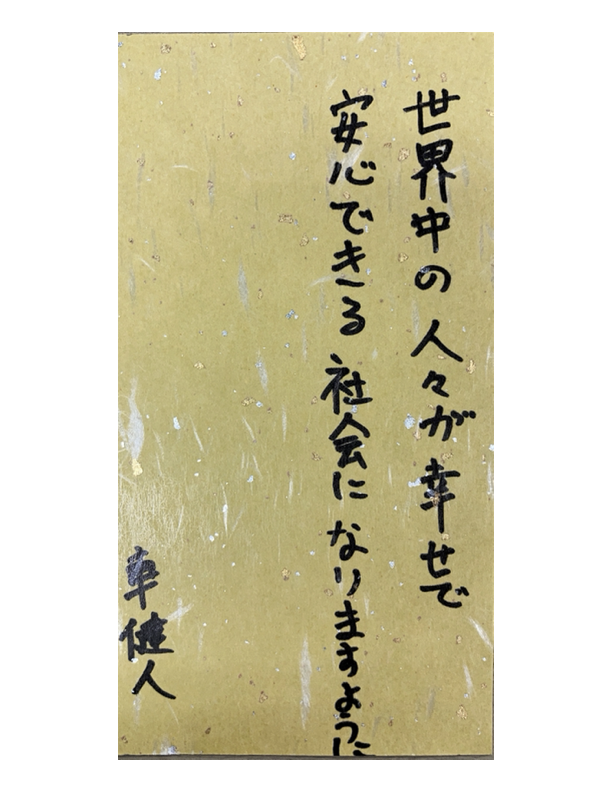 世界中の人々が幸せで
安心できる社会になりますように
車健人